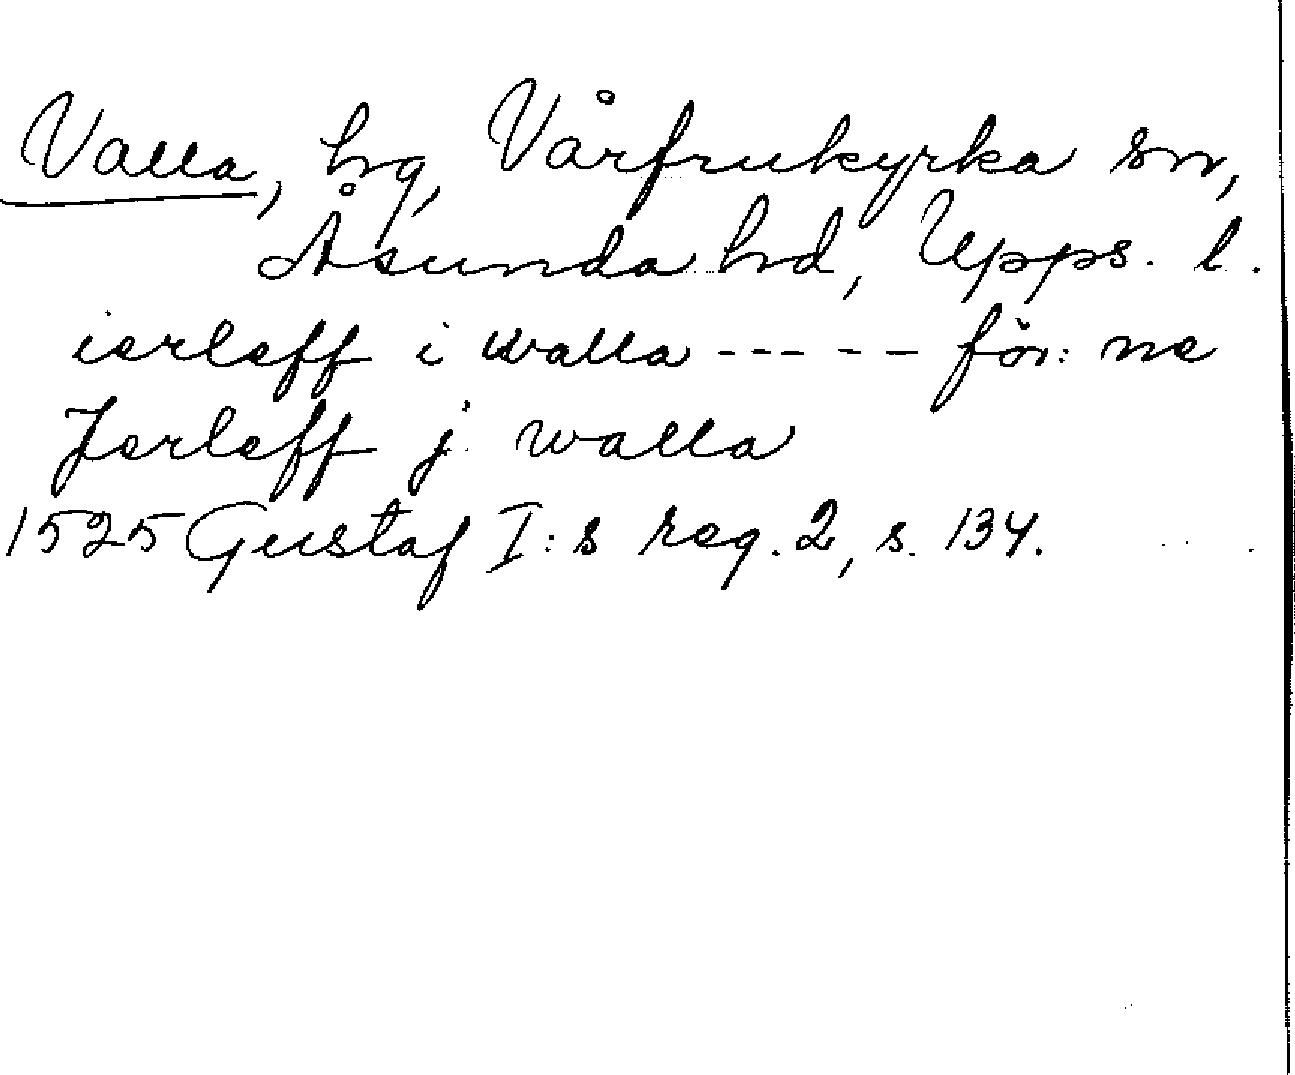 Valla, hg, Vårfrukyrka sn,
Åsunda hd, Upps. l.
ierleff i walla ----- för: ne
Jerleff j walla
1525 Gustaf I:s reg. 2, s. 134.